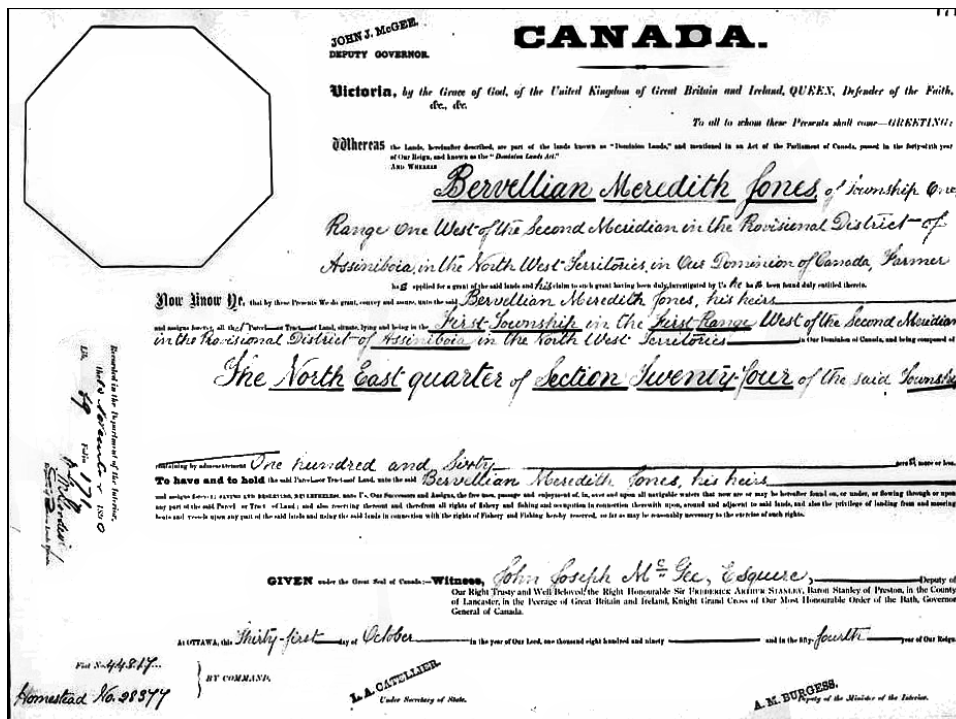 JOHN J. McGEE.
DEPUTY GOVERNOR.
CANADA.
Victoria, by the Grace of God, of the United Kingdom of Great Britain and Ireland, QUEEN, Defender of the Faith,
&c., &c.
To all to whom these Presents shall come—GREETING:
Whereas the Lands, hereinafter described, are part of the lands known as "Dominion Lands," and mentioned in an Act of the Parliament of Canada, passed in the forty-sixth year
of Our Reign, and known as the "Dominion Lands Act."
AND WHEREAS
Bervellian Meredith Jones, of Township One,
Range One West of the Second Meridian in the Provisional District of
Assiniboia, in the North West Territories, in Our Dominion of Canada, Farmer
has applied for a grant of the said lands and his claim to such grant having been duly investigated by Us he has been found duly entitled thereto.
Now Know Ye, that by these Presents We do grant, convey and assure, unto the said Bervellian Meredith Jones, his heirs
and assigns forever, all that Parcel or Tract of Land, situate, lying and being in the First Township in the First Range West of the Second Meridian
in the Provisional District of Assiniboia in the North West Territories in Our Dominion of Canada, and being composed of
The North East quarter of Section Twenty-four of the said Township
containing by admeasurement One hundred and Sixty acres more or less.
To have and to hold the said Parcel or Tract of Land, unto the said Bervellian Meredith Jones, his heirs
and assigns forever; SAVING AND RESERVING, NEVERTHELESS, unto Us, Our Successors and Assigns, the free uses, passage and enjoyment of, in, over and upon all navigable waters that now are or may be hereafter found on, or under, or flowing through or upon
any part of the said Parcel or Tract of Land; and also reserving thereout and therefrom all rights of fishery and fishing and occupation in connection therewith upon, around and adjacent to said lands, and also the privilege of landing from and mooring
boats and vessels upon any part of the said lands and using the said lands in connection with the rights of Fishery and Fishing hereby reserved, so far as may be reasonably necessary to the exercise of such rights.
GIVEN under the Great Seal of Canada:—Witness, John Joseph McGee, Esquire, Deputy of
Our Right Trusty and Well Beloved, the Right Honourable Sir FREDERICK ARTHUR STANLEY, Baron Stanley of Preston, in the County
of Lancaster, in the Peerage of Great Britain and Ireland, Knight Grand Cross of Our Most Honourable Order of the Bath, Governor
General of Canada.
At OTTAWA, this Thirty-first day of October in the year of Our Lord, one thousand eight hundred and ninety and in the fifty-fourth year of Our Reign.
Fiat No. 44817
BY COMMAND.
Homestead No. 28377
L. A. CATELLIER.
Under Secretary of State.
A. M. BURGESS.
Deputy of the Minister of the Interior.
Recorded in the Department of the Interior,
the November 1890
Lib. 89 Folio 176